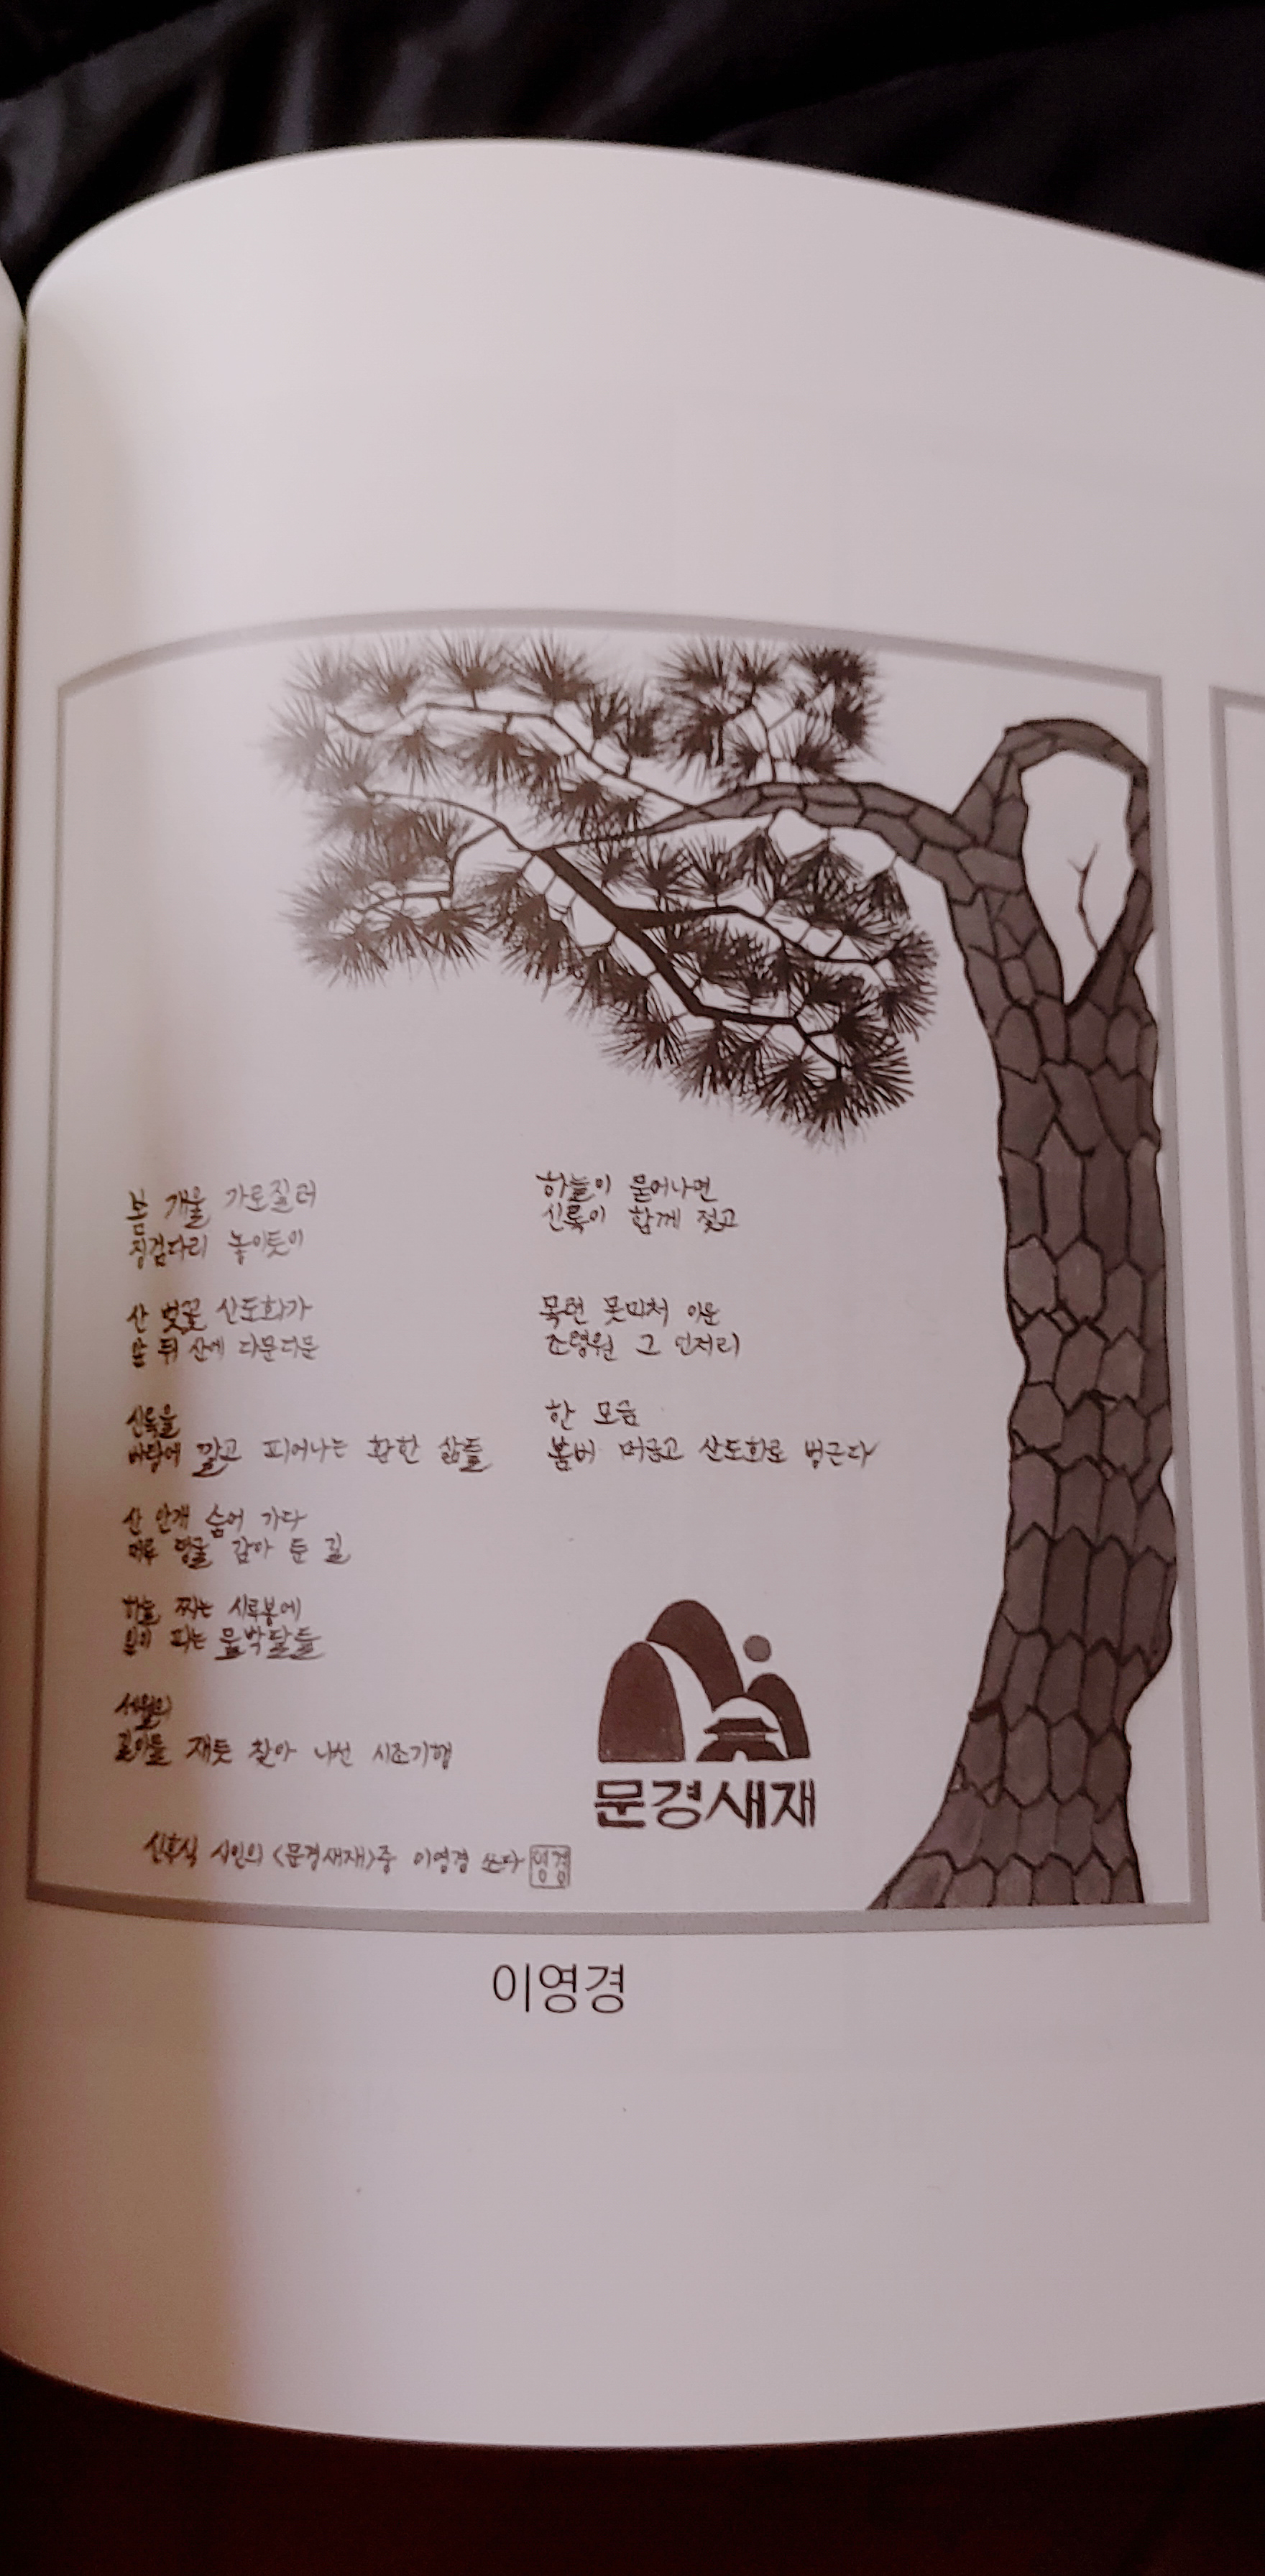 봄 개울 가로질러
징검다리 놓이듯이
산 벚꽃 산도화가
앞 뒤 산에 다문다문
신록을
바탕에 깔고 피어나는 환한 삶들
산 안개 숨어 가다
머루 덩굴 감아 둔 길
하늘 찌는 시루봉에
피는 물박달들
세월의
길이를 재듯 찾아 나선 시조기행
하늘이 묻어나면
신록이 함께 젖고
목련 못미처 아문
조령원 그 언저리
한 모금
봄비 머금고 산도화로 벙근다
문경새재
신후식 시인의 <문경새재>중 이영경 쓰다 영경
이영경